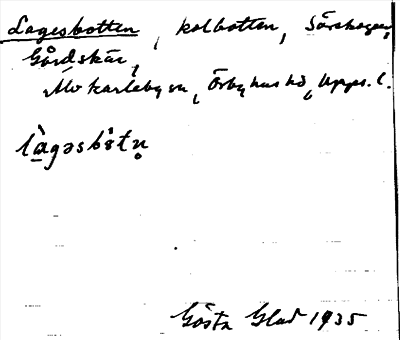 Lagesbotten, kolbotten, Sörskogen,
Gårdskär,
Älvkarleby sn, Örbyhus hd, Upps. l.
làgəsbòtn̥
Gösta Glad 1935